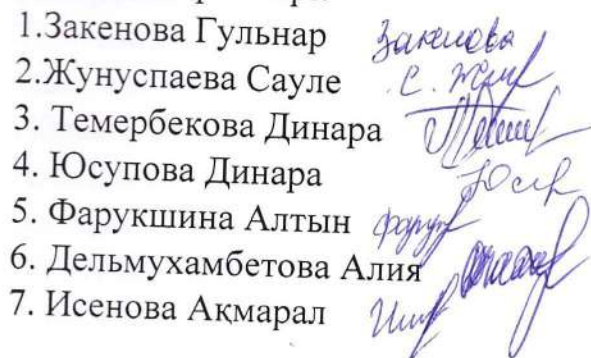 1.Закенова Гульнар Закенова
2.Жунуспаева Сауле
3. Темербекова Динара
4. Юсупова Динара
5. Фарукшина Алтын
6. Дельмухамбетова Алия
7. Исенова Ақмарал